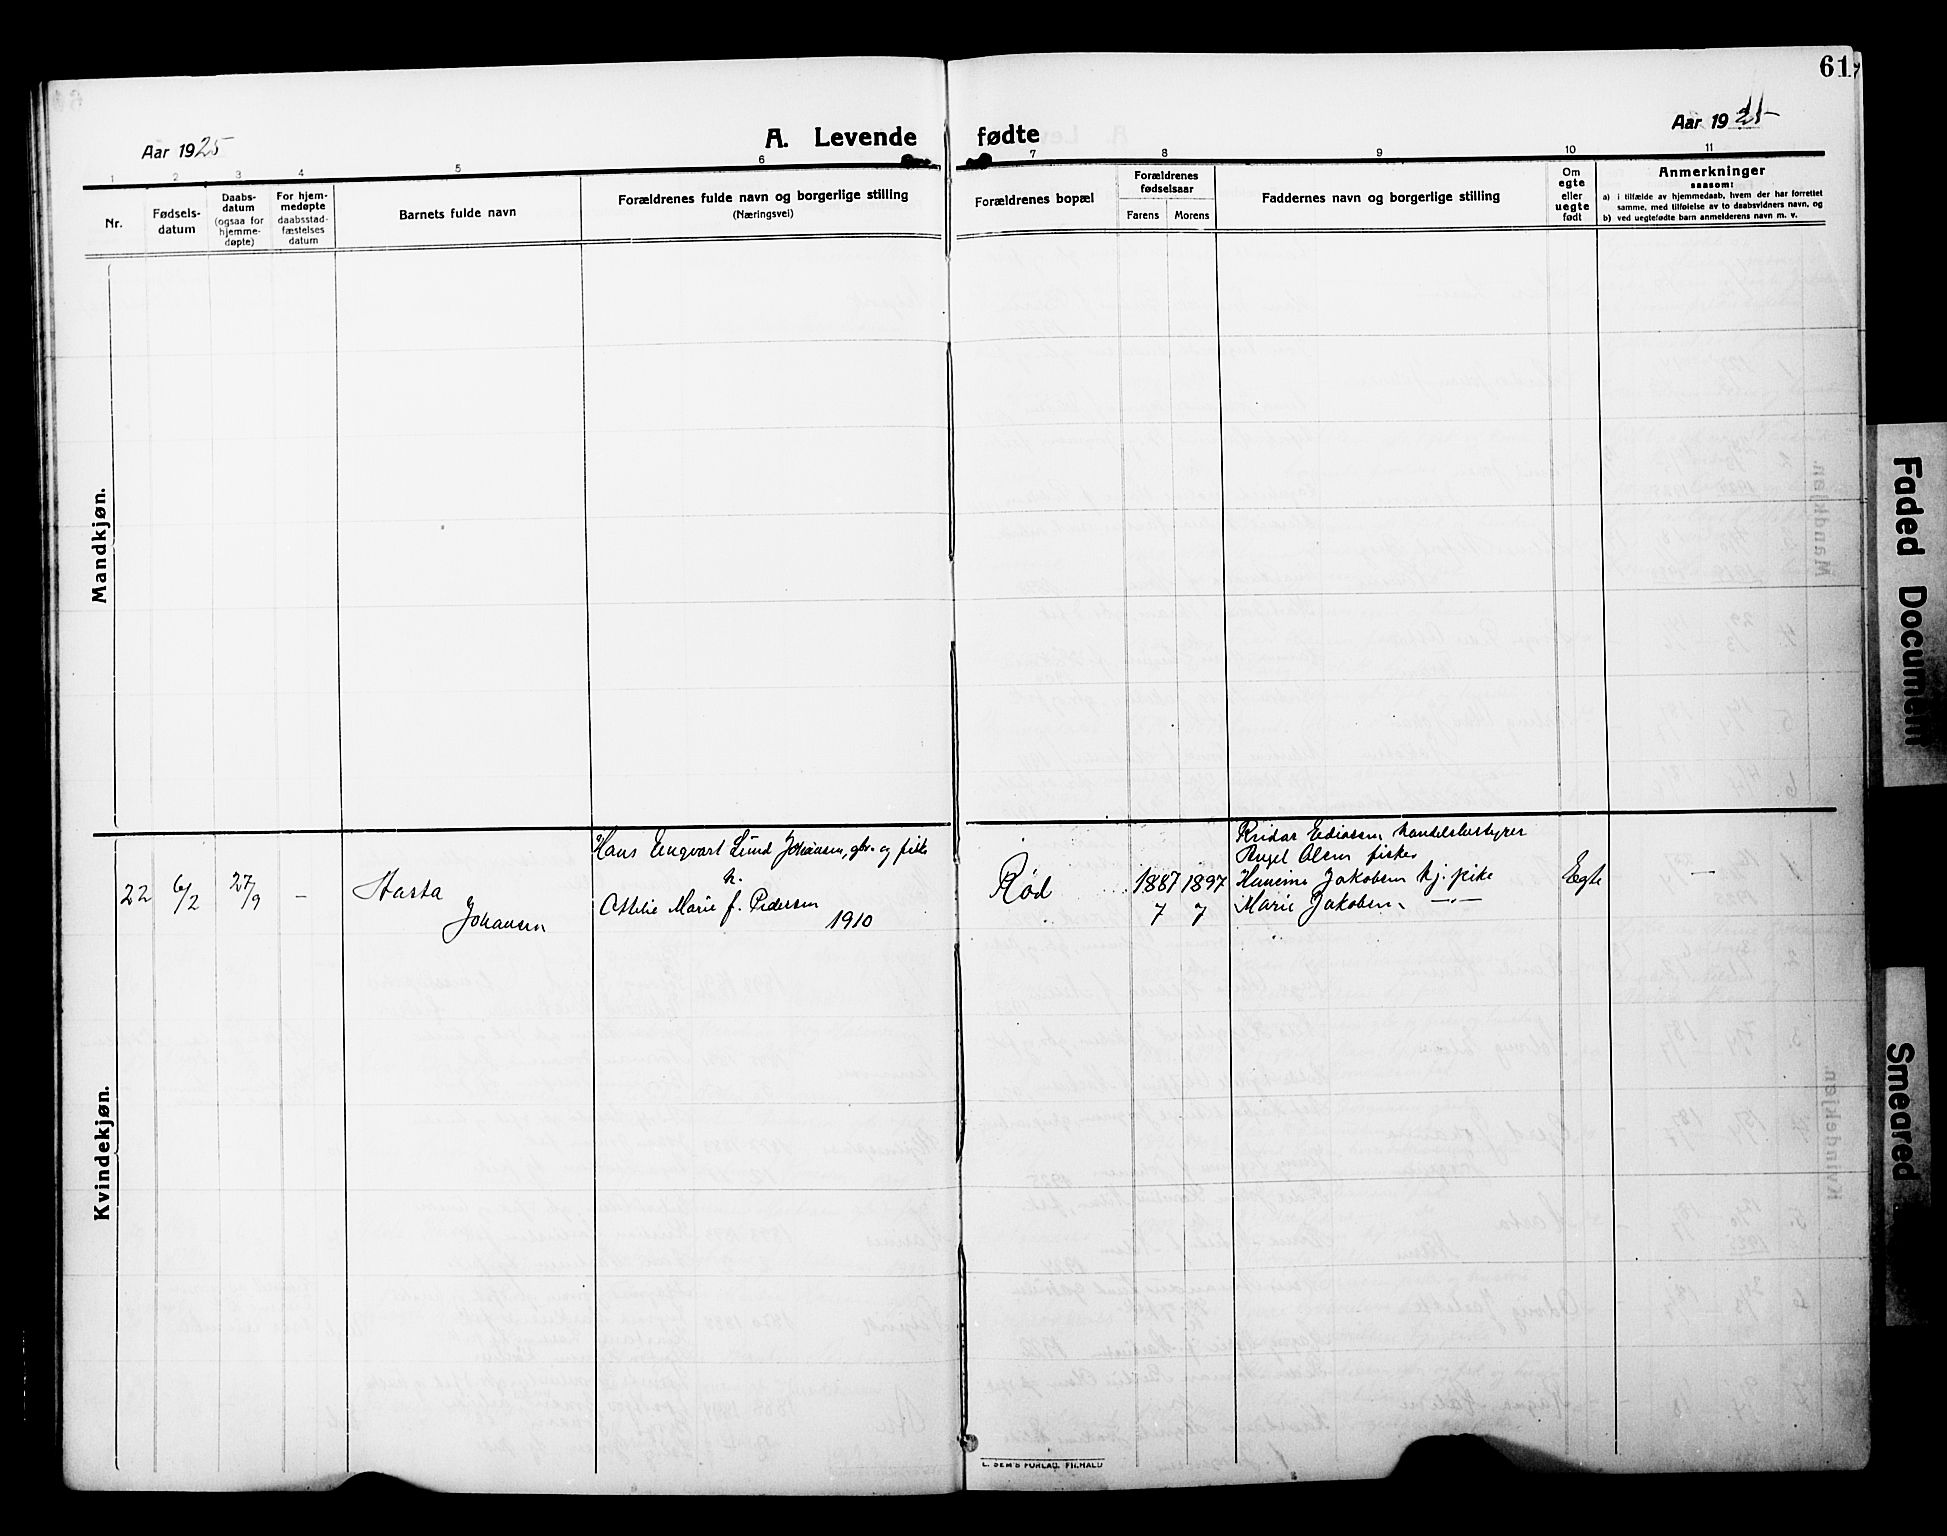 61
Aar 1925
A. Levende fødte
Aar 19
1 2 3 4 5 6 7 8 9 10 11
Nr.
Fødsels-
datum
Daabs-
datum
(ogsaa for
hjemme-
døpte)
For hjem-
medøpte
daabsstad-
fæstelses
datum
Barnets fulde navn
Forældrenes fulde navn og borgerlige stilling
(Næringsvei)
Forældrenes bopæl
Forældrenes
fødselsaar
Farens
Morens
Faddernes navn og borgerlige stilling
Om
egte
eller
uegte
født
Anmerkninger
saasom:
a) i tilfælde av hjemmedaab, hvem der har forrettet
samme, med tilføielse av to daabsvidners navn, og
b) ved uegtefødte barn anmelderens navn m. v.
Mandkjøn.
Kvindekjøn.
22
6/2
27/9
–
Hasta
Johansen
Hans Engvart Lund Johansen, gbr. og fisk
h.
Otelie Marie f. Pedersen
1910
Rød
1887 1897
7 7
Reidar Ediassen handelsbestyrer
Birgel Olsen fisker
Hansine Jakobsen hj. pike
Marie Jakobsen —"—
Egte
—
E. SEM'S FORLAG, FR.HALD
Faded Document
Smeared